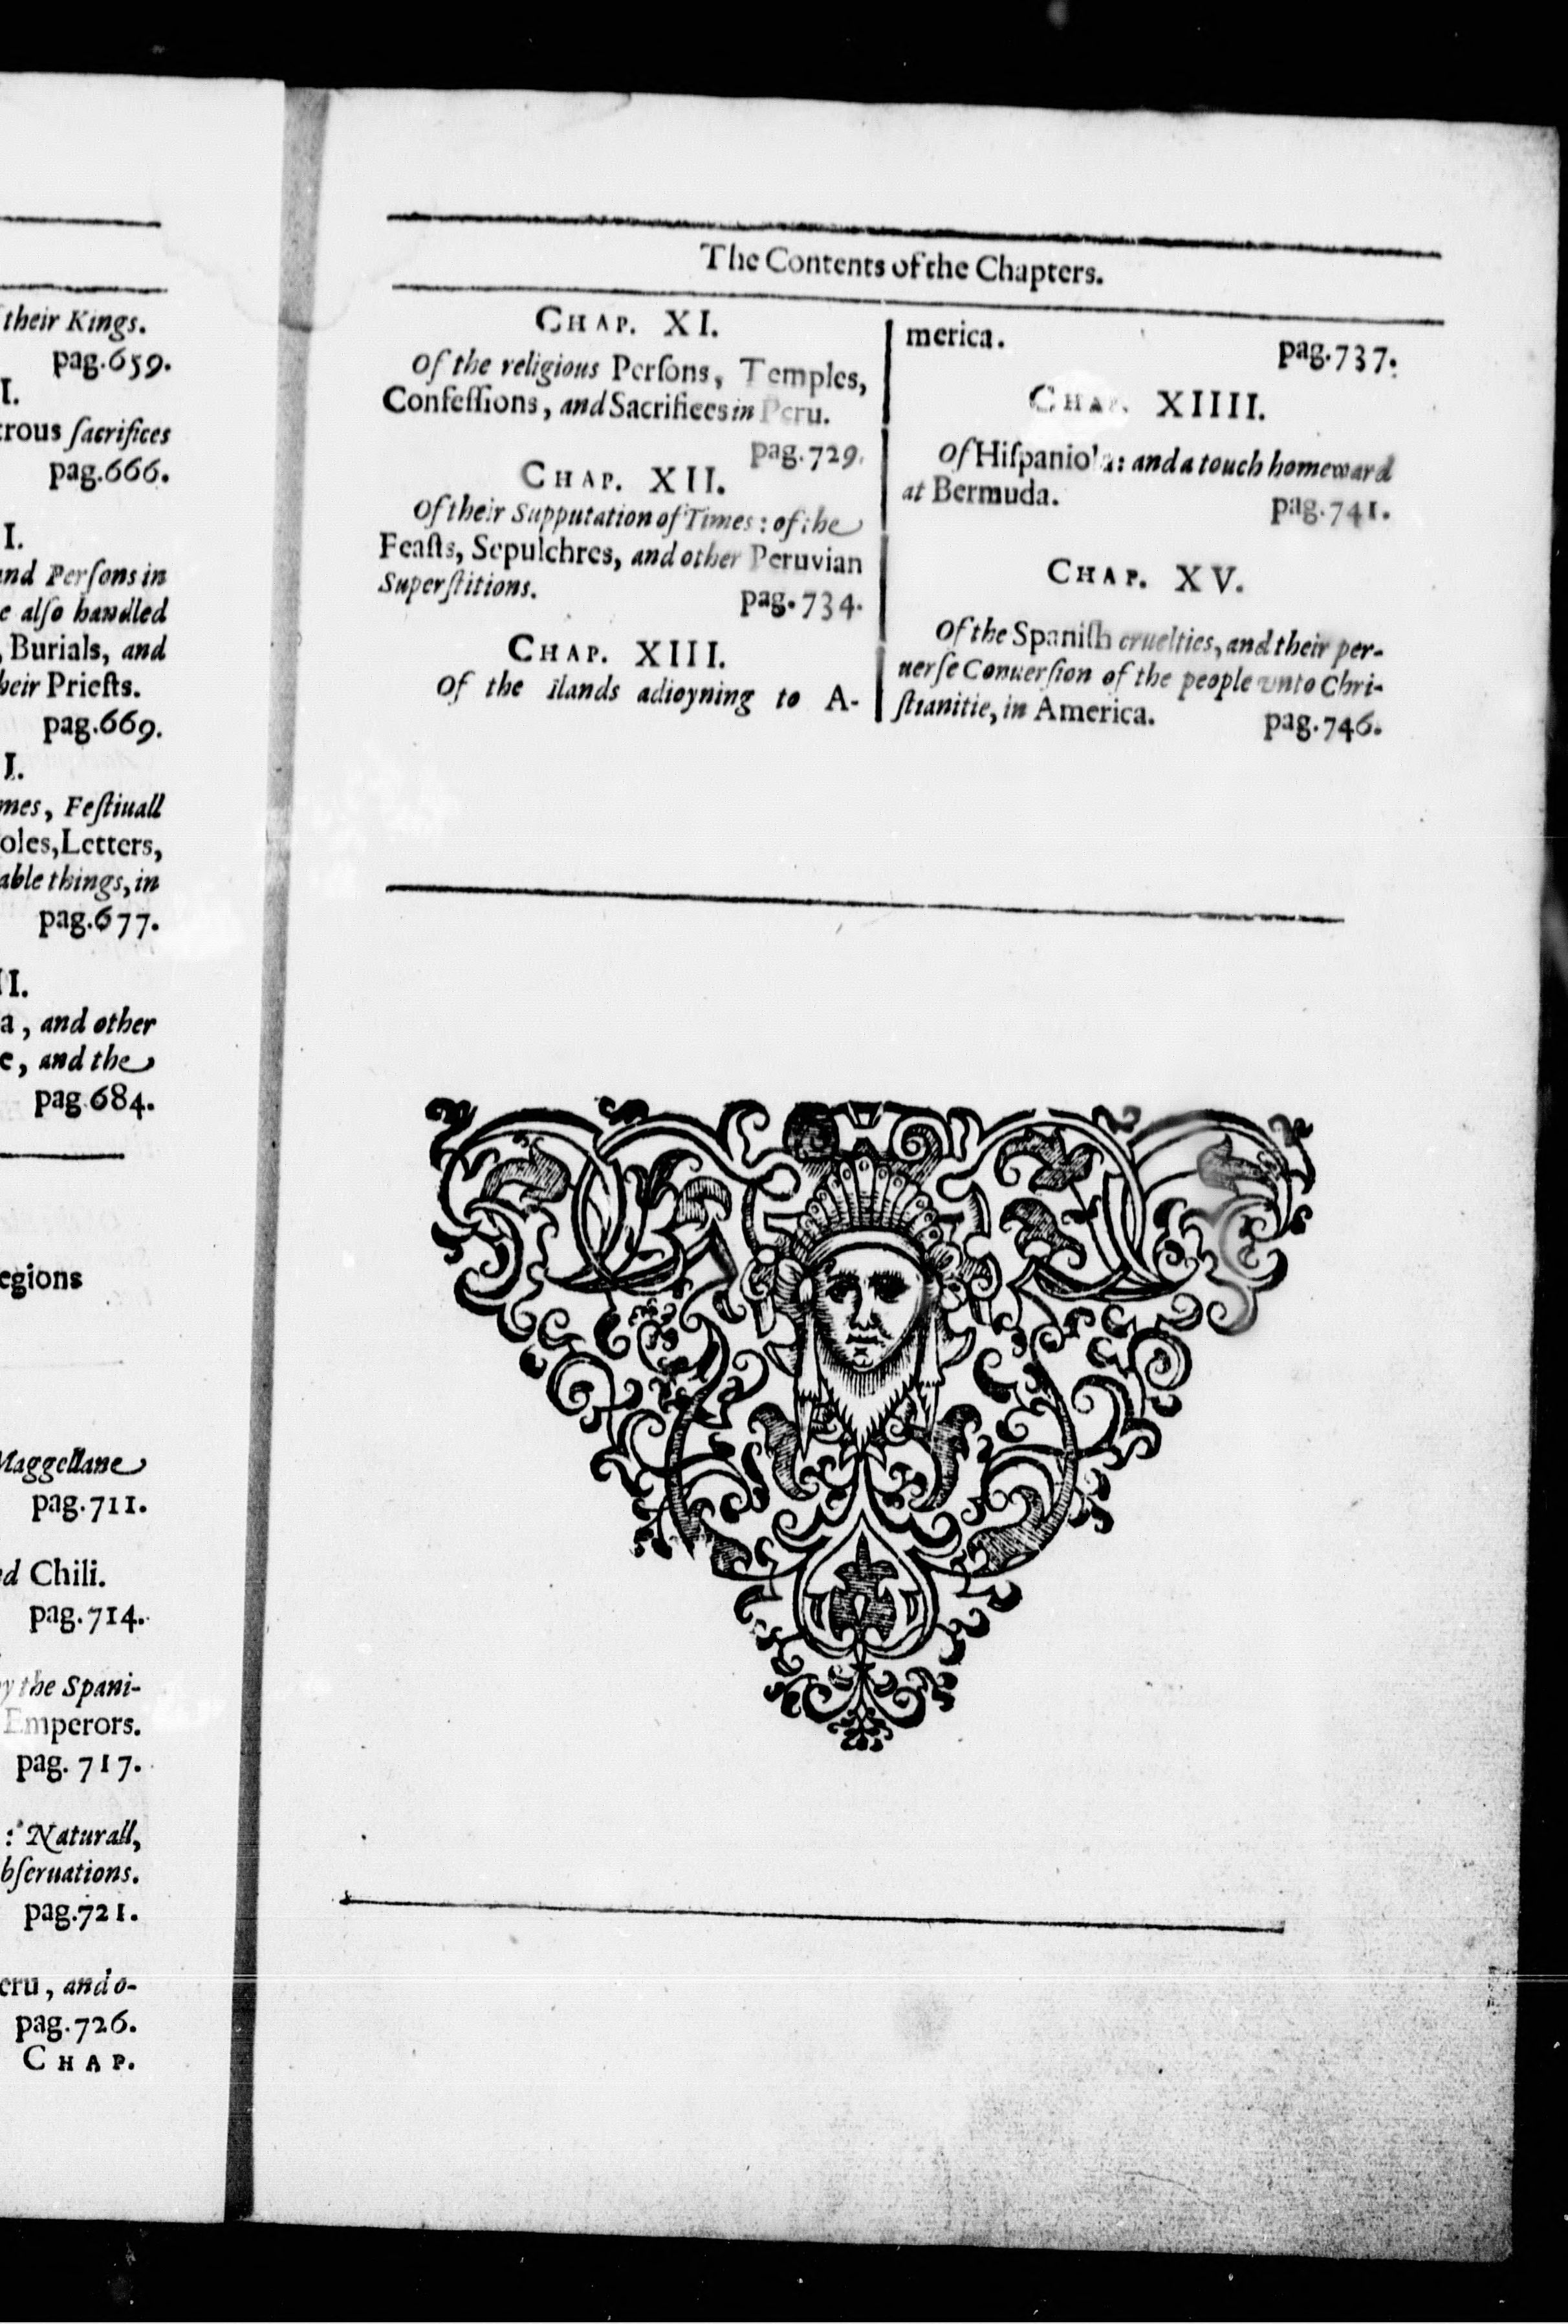 their Kings.
pag.659.
I.
trous ſacrifices
pag.666.
I.
and Perſons in
e alſo handled
, Burials, and
heir Prieſts.
pag.669.
I.
mes, Feſtiuall
oles, Letters,
able things, in
pag.677.
II.
a, and other
e, and the
pag.684.
egions
Maggellane
pag.711.
nd Chili.
pag.714.
by the Spani-
Emperors.
pag. 717.
: Naturall,
bſeruations.
pag.721.
eru, and o-
pag.726.
CHAP.
The Contents of the Chapters.
CHAP. XI.
Of the religious Perſons, Temples,
Confeſſions, and Sacrifices in Peru.
pag.729.
CHAP. XII.
Of their Supputation of Times: of the
Feaſts, Sepulchres, and other Peruvian
Superſtitions. pag.734.
CHAP. XIII.
Of the ilands adioyning to A-
merica. pag.737.
CHAP. XIIII.
Of Hiſpaniola: and a touch homeward
at Bermuda. pag.741.
CHAP. XV.
Of the Spaniſh cruelties, and their per-
uerſe Conuerſion of the people vnto Chri-
ſtianitie, in America. pag.746.